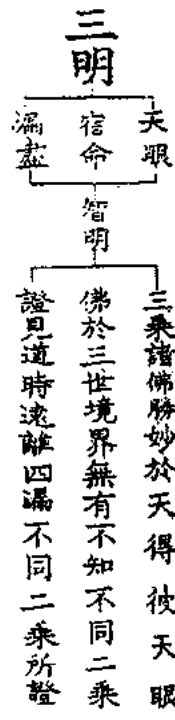 三明
天眼
宿命
漏盡
智明
三乘諸佛勝妙於天得彼天眼
佛於三世境界無有不知不同二乘
證見道時遠離四漏不同二乘所證